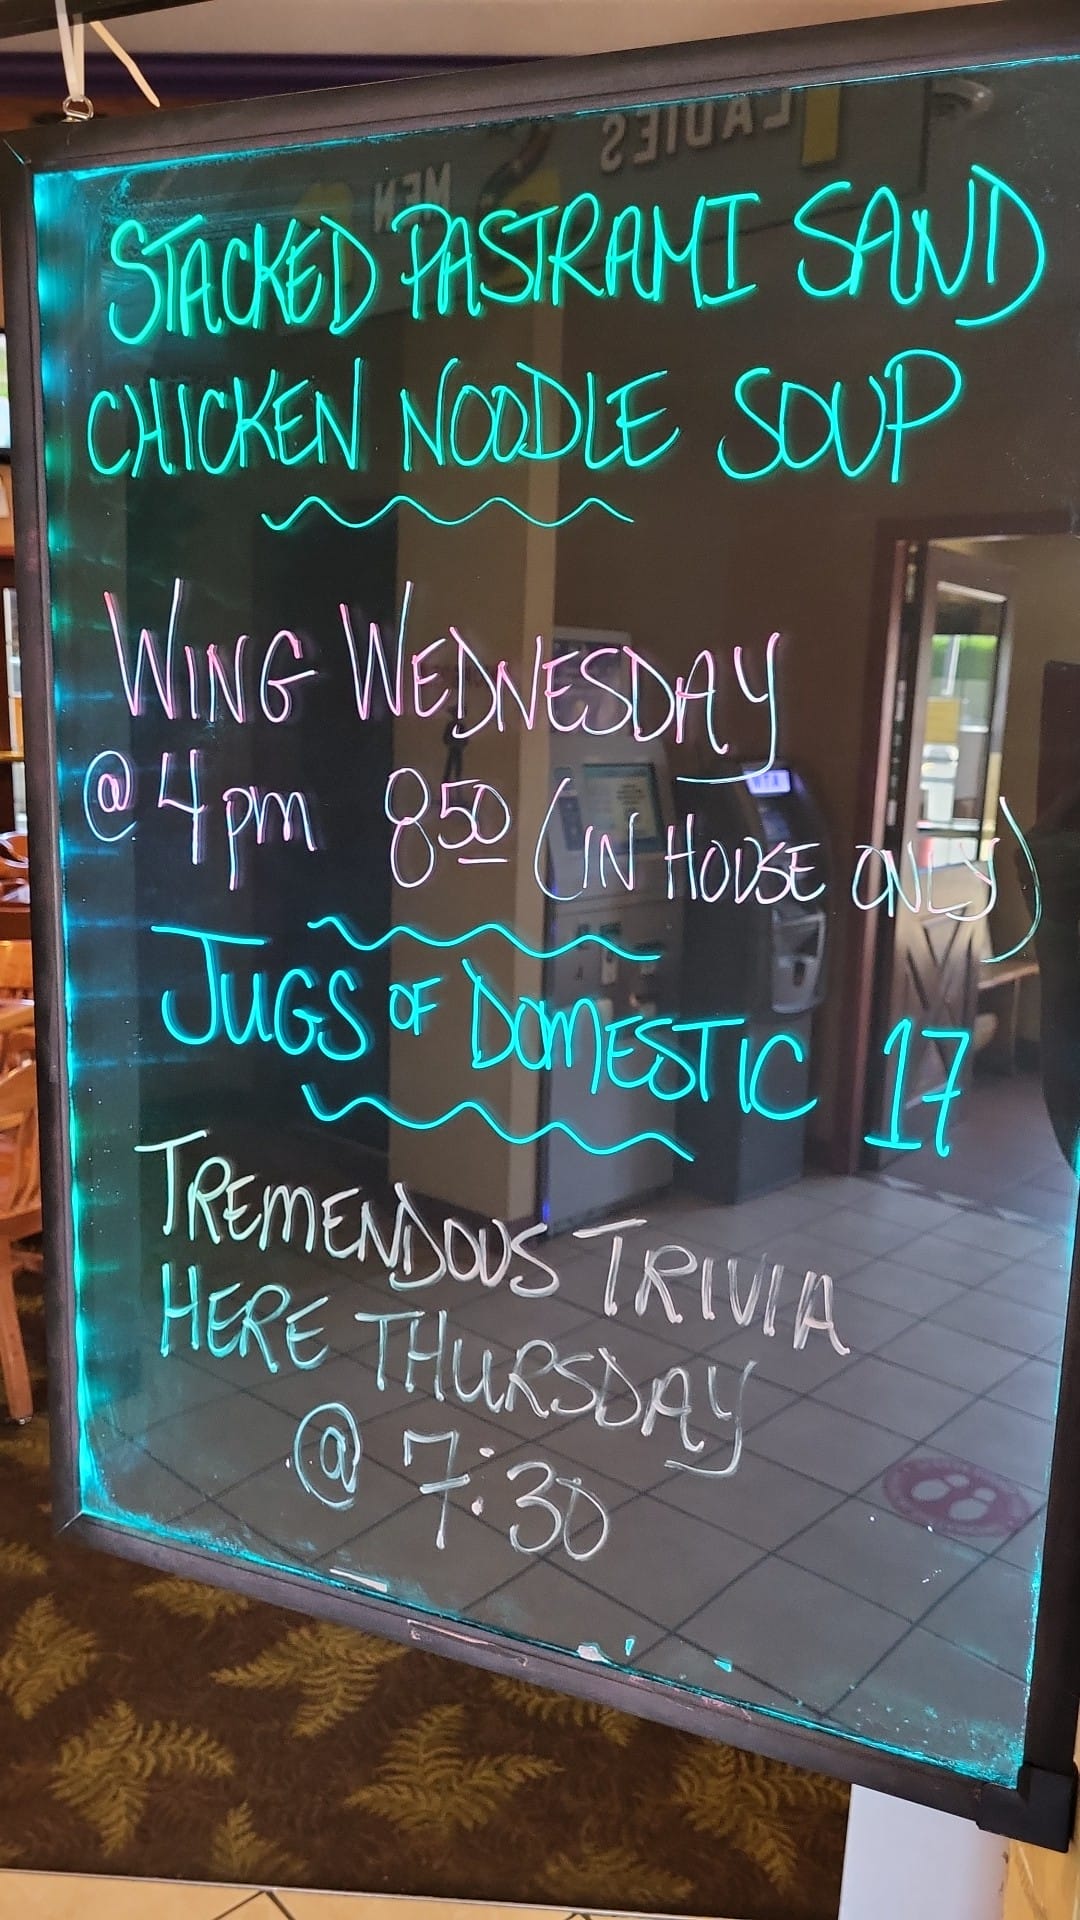 LADIES
MEN
STACKED PASTRAMI SAND
CHICKEN NOODLE SOUP
WING WEDNESDAY
@ 4pm 8 50 (IN HOUSE ONLY)
JUGS OF DOMESTIC 17
TREMENDOUS TRIVIA
HERE THURSDAY
@ 7:30